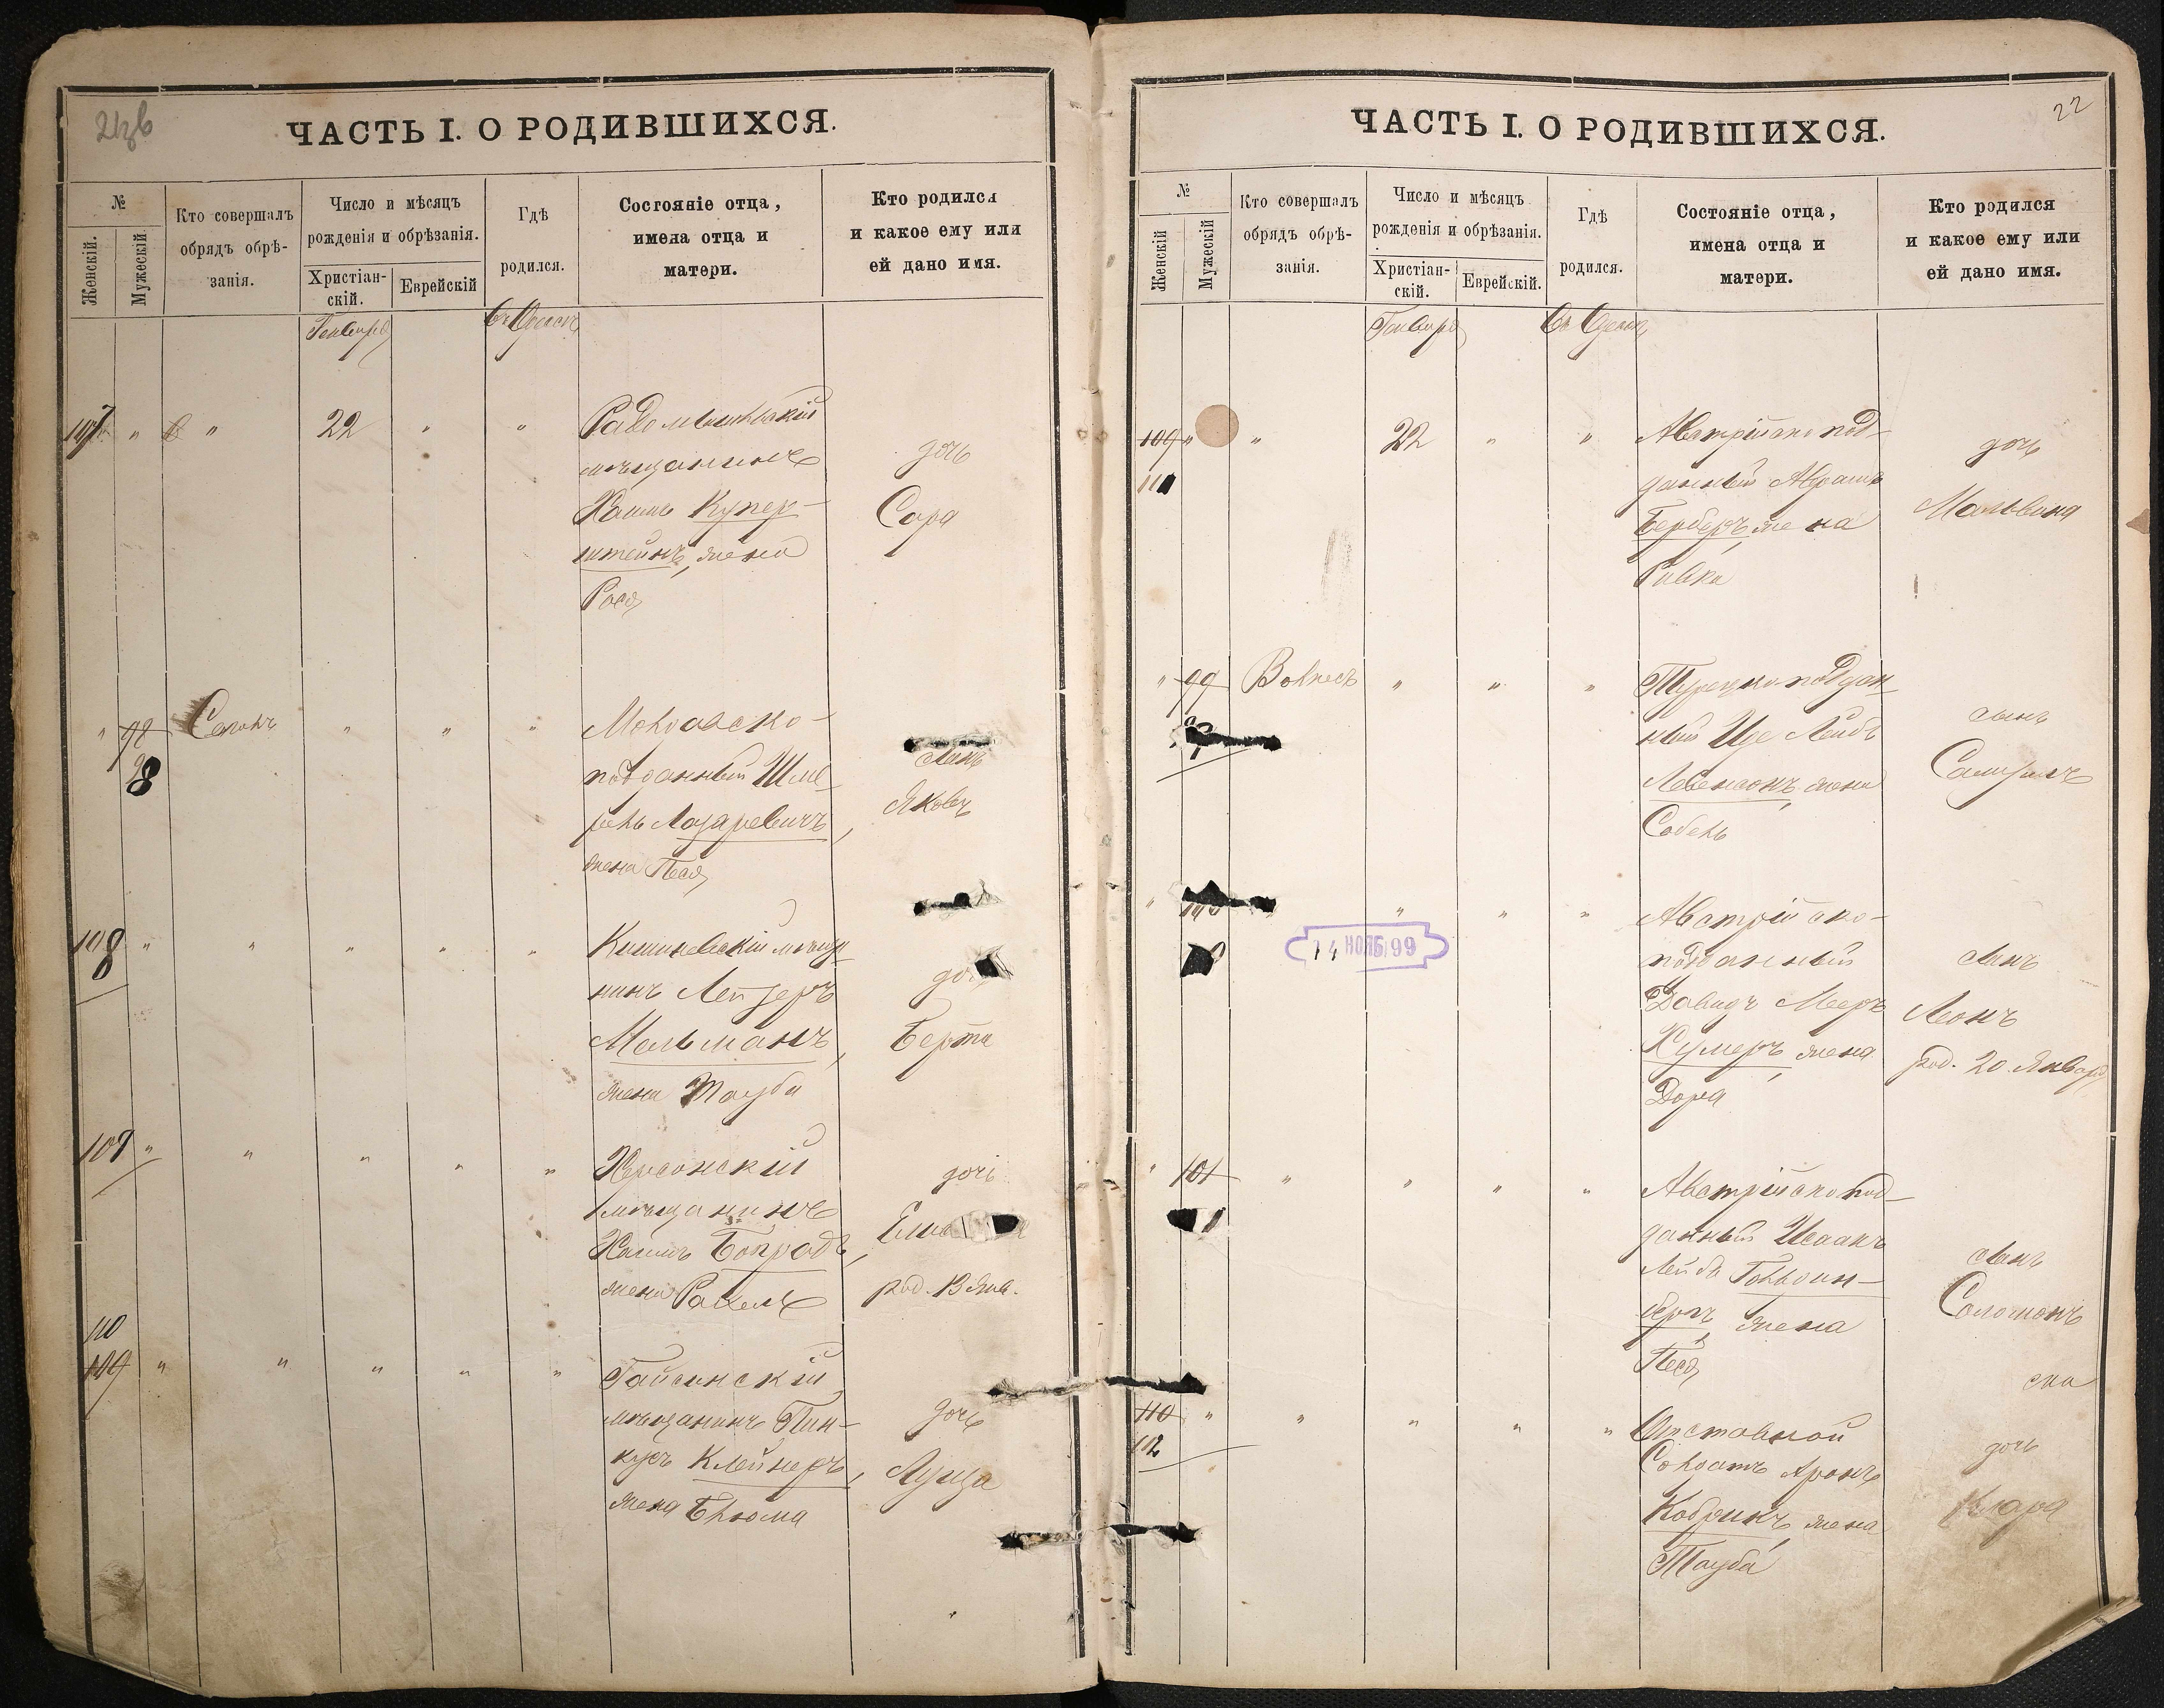 ЧАСТЬ I. О РОДИВШИХСЯ.
№
Женскій.
Мужескій
Кто совершалъ
обрядъ обрѣ-
занія.
Число и мѣсяцъ
рожденія и обрѣзанія.
Христіан-
скій.
Еврейскій
Гдѣ
родился.
Состояніе отца,
имена отца и
матери.
Кто родился
и какое ему или
ей дано имя.
Генваря
Въ Одессѣ
107 " " 22 " "
Радомысльскій
мѣщанинъ
Хаимъ Купер-
штейнъ, жена
Рося
дочь
Сара
" 98 " " "
98
Молдавско-
подданный
Лазаревичъ,
жена Песя
сынъ
Яковъ
108 " " " " "
Кишиневскій мѣща-
нинъ Лейзеръ
Мельманъ,
жена Тауба
Берта
109 " " " " "
Херсонскій
мѣщанинъ
Хаимъ
жена Рахель
дочь
род. 13 Янв.
110
109 " " " " "
Гайсинскій
мѣщанинъ Пин-
кусъ Клейнеръ,
жена Блюма
дочь
22
ЧАСТЬ I. О РОДИВШИХСЯ.
№
Женскій
Мужескій
Кто совершалъ
обрядъ обрѣ-
занія.
Число и мѣсяцъ
рожденія и обрѣзанія.
Христіан-
скій.
Еврейскій.
Гдѣ
родился.
Состояніе отца,
имена отца и
матери.
Кто родился
и какое ему или
ей дано имя.
Генваря
Въ Одессѣ
109 " " 22 " "
111
Австрійско под-
данный Абрамъ
Герберъ, жена
Ривка
дочь
Мальвина
" 99 " " "
Турецко-поддан-
ный Лейбъ
Левенсонъ, жена
сынъ
" " " "
14 НОЯБ 99
Австрійско-
подданный
Давидъ Мееръ
жена
Дора
сынъ
Леонъ
род. 20 Января
" 101 " " " "
Австрійско под-
данный Исаакъ
Лейбъ Гольдин-
бергъ, жена
Песя
сынъ
Соломонъ
110 " " " " "
112
Отставной
Солдатъ Аронъ
Кобринъ, жена
Тауба
дочь
Клара